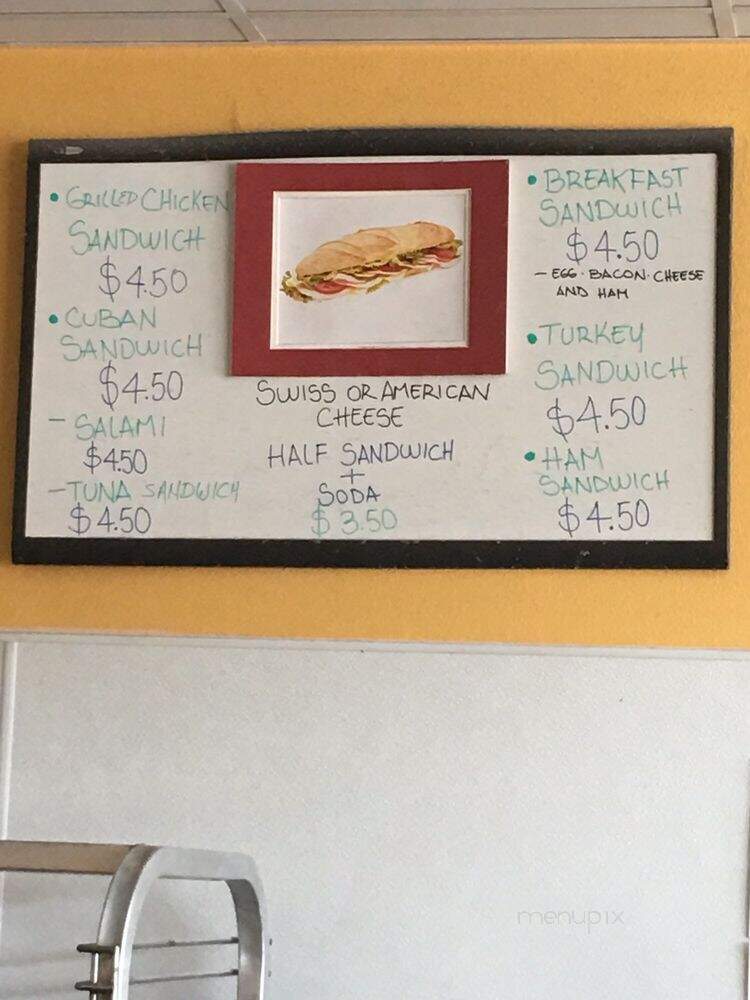 • GRILLED CHICKEN
SANDWICH
$4.50
• CUBAN
SANDWICH
$4.50
- SALAMI
$4.50
- TUNA SANDWICH
$4.50
SWISS OR AMERICAN
CHEESE
HALF SANDWICH
+
SODA
$3.50
• BREAKFAST
SANDWICH
$4.50
- EGG · BACON · CHEESE
AND HAM
• TURKEY
SANDWICH
$4.50
• HAM
SANDWICH
$4.50
menupix